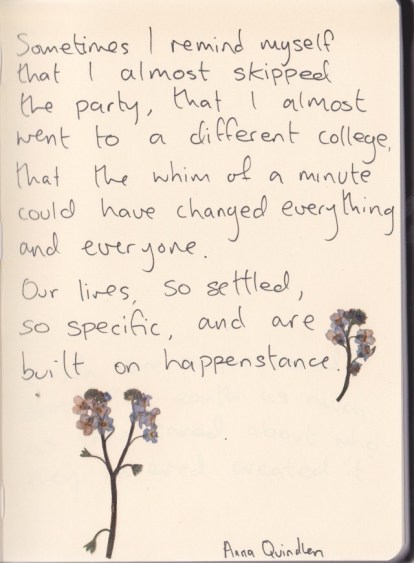 Sometimes I remind myself
that I almost skipped
the party, that I almost
went to a different college,
that the whim of a minute
could have changed everything
and everyone.
Our lives, so settled,
so specific, and are
built on happenstance.
Anna Quindlen